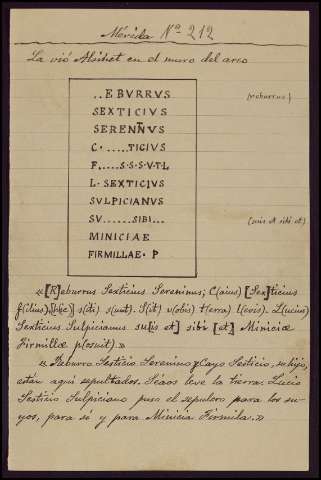 Mérida Nº 212
La vió Alsinet en el muro del arco
..EBURRUS
(reburrus)
SEXTICIUS
SERENNUS
C·.....TICIUS
F.....S·S·S·V·T·L
L·SEXTICIUS
SULPICIANUS
SU.......SIBI...
(suis et sibi et)
MINICIAE
FIRMILLAE·P
«[R]eburrus Sexticius Serenimus; C(aius) [Sex]ticius
f(ilius) [h(ic)] s(iti) s(unt). S(it) v(obis) t(erra) l(evis). L(ucius)
Sexticius Sulpicianus su[is et] sibi [et] Miniciæ
Firmillæ p(osuit)»
«Reburro Sesticio Serenino y Cayo Sesticio, su hijo,
están aquí sepultados. Séaos leve la tierra. Lucio
Sesticio Sulpiciano puso el sepulcro para los su-
yos, para sí y para Minicia Firmila.»